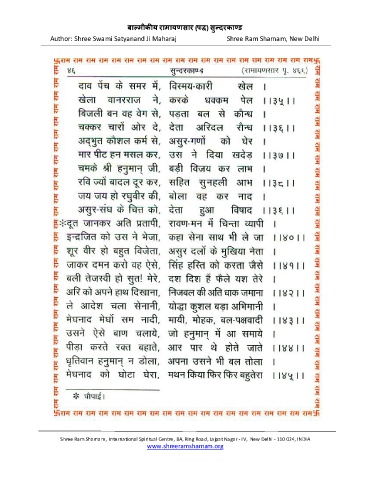 वाल्मीकीय रामायणसार (पद्य) सुन्दरकाण्ड
Author: Shree Swami Satyanand Ji Maharaj Shree Ram Sharnam, New Delhi
卐राम राम राम राम राम राम राम राम राम राम राम राम राम राम राम राम राम राम राम राम卐
४६ सुन्दरकाण्ड (रामायणसार पृ. ४६९)
दाव पेंच के समर में, विस्मय-कारी खेल ।
खेला वानरराज ने, करके धक्कम पेल ।।३५।।
बिजली बन वह वेग से, पड़ता बल से कौन्ध ।
चक्कर चारों ओर दे, देता अरिदल रौन्ध ।।३६।।
अद्भुत कौशल कर्म से, असुर-गणों को घेर ।
मार पीट हन मसल कर, उस ने दिया खदेड़ ।।३७।।
चमके श्री हनुमान् जी, बड़ी विजय कर लाभ ।
रवि ज्यों बादल दूर कर, सहित सुनहली आभ ।।३८।।
जय जय हो रघुवीर की, बोला वह कर नाद ।
असुर-संघ के चित्त को, देता हुआ विषाद ।।३९।।
❊दूत जानकर अति प्रतापी, रावण-मन में चिन्ता व्यापी ।
इन्द्रजित को उस ने भेजा, कहा सेना साथ भी ले जा ।।४०।।
शूर वीर हो बहुत विजेता, असुर दलों के मुखिया नेता ।
जाकर दमन करो वह ऐसे, सिंह हस्ति को करता जैसे ।।४१।।
बली तेजस्वी हो सुत! मेरे, दश दिश हैं फैले यश तेरे ।
अरि को अपने हाथ दिखाना, निजबल की अति धाक जमाना ।।४२।।
ले आदेश चला सेनानी, योद्धा कुशल बड़ा अभिमानी ।
मेघनाद मेघों सम नादी, मायी, मोहक, बल-पक्षवादी ।।४३।।
उसने ऐसे बाण चलाये, जो हनुमान् में आ समाये ।
पीड़ा करते रक्त बहाते, आर पार थे होते जाते ।।४४।।
धृतिवान हनुमान् न डोला, अपना उसने भी बल तोला ।
मेघनाद को घोटा घेरा, मथन किया फिर फिर बहुतेरा ।।४५।।
❊ चौपाई।
卐राम राम राम राम राम राम राम राम राम राम राम राम राम राम राम राम राम राम राम राम卐
Shree Ram Sharnam, International Spiritual Centre, 8A, Ring Road, Lajpat Nagar - IV, New Delhi - 110 024, INDIA
www.shreeramsharnam.org